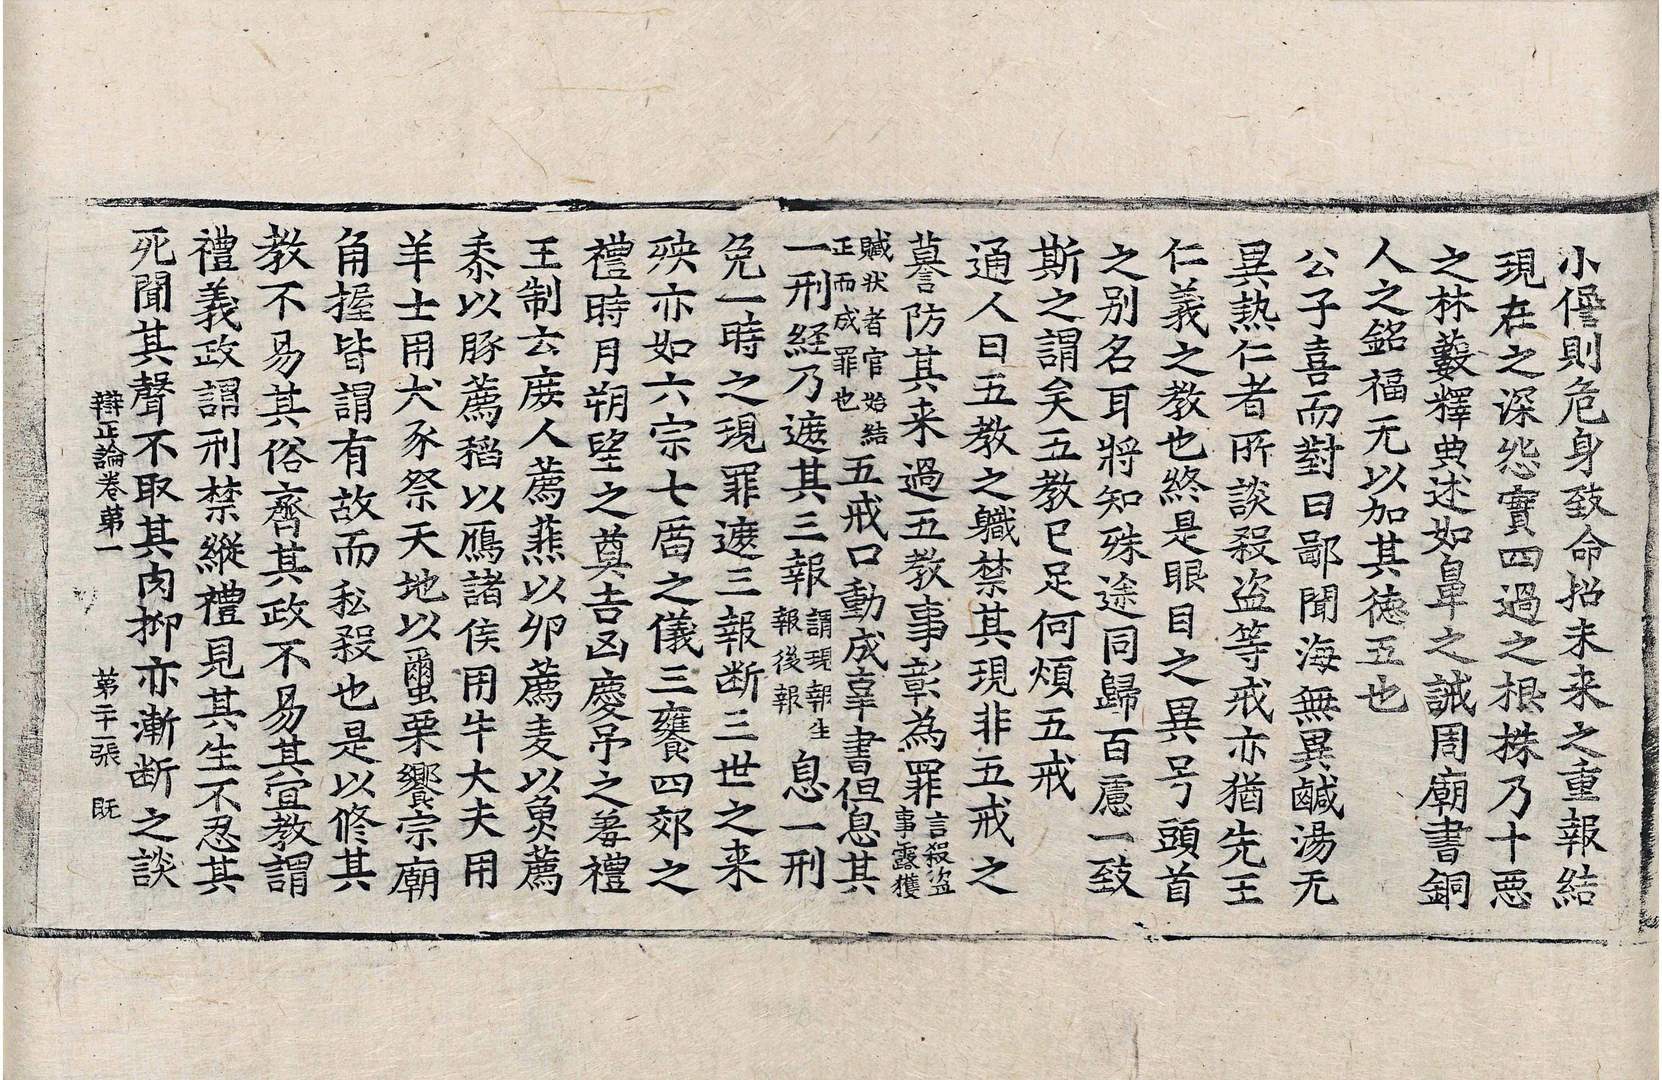 小僁則危身致命招未来之重報結
現在之深怨實四過之根株乃十惡
之林藪釋典述如皐之誡周廟書銅
人之銘福无以加其德五也
公子喜而對曰鄙聞海無異鹹湯无
異熱仁者所談殺盗等戒亦猶先王
仁義之教也終是眼目之異号頭首
之别名耳將知殊途同歸百慮一致
斯之謂矣五教已足何煩五戒
通人曰五教之軄禁其現非五戒之
謩防其来過五教事彰為罪言殺盗事露獲
贓状者官始結正而成罪也五戒口動成辜書但息其
一刑経乃遮其三報謂現報生報後報息一刑
免一時之現罪遮三報断三世之来
殃亦如六宗七庿之儀三饔四郊之
禮時月朔望之奠吉凶慶吊之羞禮
王制云庻人薦䕬以卵薦麦以魚薦
黍以豚薦稻以鴈諸侯用牛大夫用
羊士用犬豕祭天地以璽栗饗宗廟
角握皆謂有故而私殺也是以修其
教不易其俗齊其政不易其宜教謂
禮義政謂刑禁縱禮見其生不忍其
死聞其聲不取其肉抑亦漸断之談
辯正論卷第一 第二十一張 既